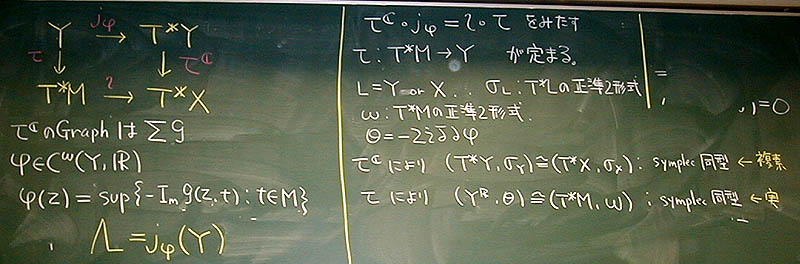 Y jφ→ T*Y
τ ↓ ↓ τ^ℂ
T*M →^ι T*X
τ^ℂのGraphはΣg
φ∈C^ω(Y, ℝ)
φ(z) = sup{-Im g(z,t) : t∈M}
Λ = jφ(Y)
τ^ℂ∘jφ = ι∘τ をみたす
τ: T*M→Y が定まる。
L=Y or X .. σ_L: T*Lの正準2形式
ω: T*Mの正準2形式.
Θ = -2i∂̄∂φ
τ^ℂにより (T*Y, σ_Y)≅(T*X, σ_X) : symplec同型 ←複素
τ により (Y^ℝ, Θ)≅(T*M, ω) : symplec同型 ←実
=
=0